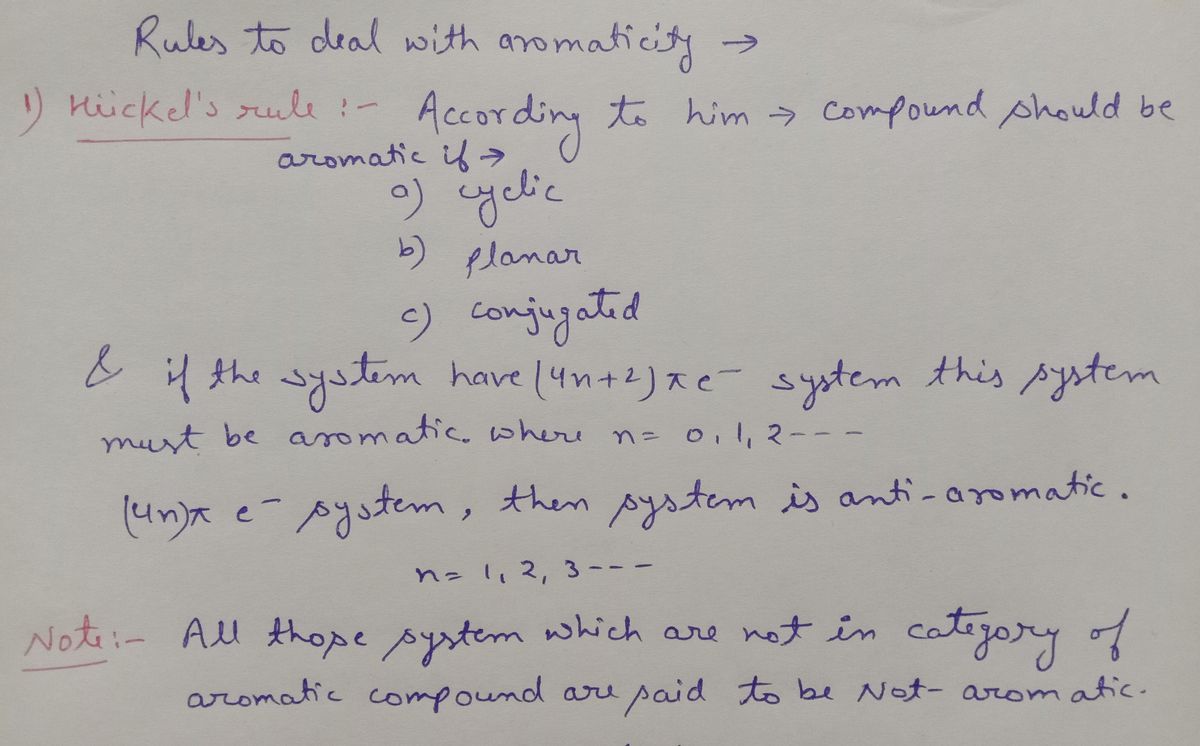 Rules to deal with aromaticity →
1) Hückel's rule :- According to him → compound should be
aromatic if →
a) cyclic
b) planar
c) conjugated
& if the system have (4n+2) π e⁻ system this system
must be aromatic. where n= 0, 1, 2---
(4n)π e⁻ system, then system is anti-aromatic.
n= 1, 2, 3---
Note:- All those system which are not in category of
aromatic compound are said to be Not-aromatic.